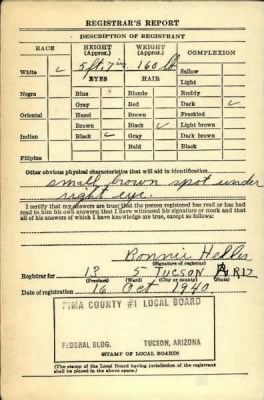 REGISTRAR'S REPORT
DESCRIPTION OF REGISTRANT
RACE HEIGHT (Approx.) WEIGHT (Approx.) COMPLEXION
White ✓ 5 ft. 7 in 160 lb Sallow
EYES HAIR Light
Negro Blue Blonde Ruddy
Gray Red Dark ✓
Oriental Hazel Brown Freckled
Brown Black ✓ Light brown
Indian Black ✓ Gray Dark brown
Bald Black
Filipino
Other obvious physical characteristics that will aid in identification
small brown spot under
right eye.
I certify that my answers are true; that the person registered has read or has had
read to him his own answers; that I have witnessed his signature or mark and that
all of his answers of which I have knowledge are true, except as follows:
Bonnie Heller
(Signature of registrar)
Registrar for 13 5 TUCSON ARIZ
(Precinct) (Ward) (City or county) (State)
Date of registration 16 Oct 1940.
PIMA COUNTY #1 LOCAL BOARD
FEDERAL BLDG. TUCSON, ARIZONA
(STAMP OF LOCAL BOARD)
(The stamp of the Local Board having jurisdiction of the registrant
shall be placed in the above space.)